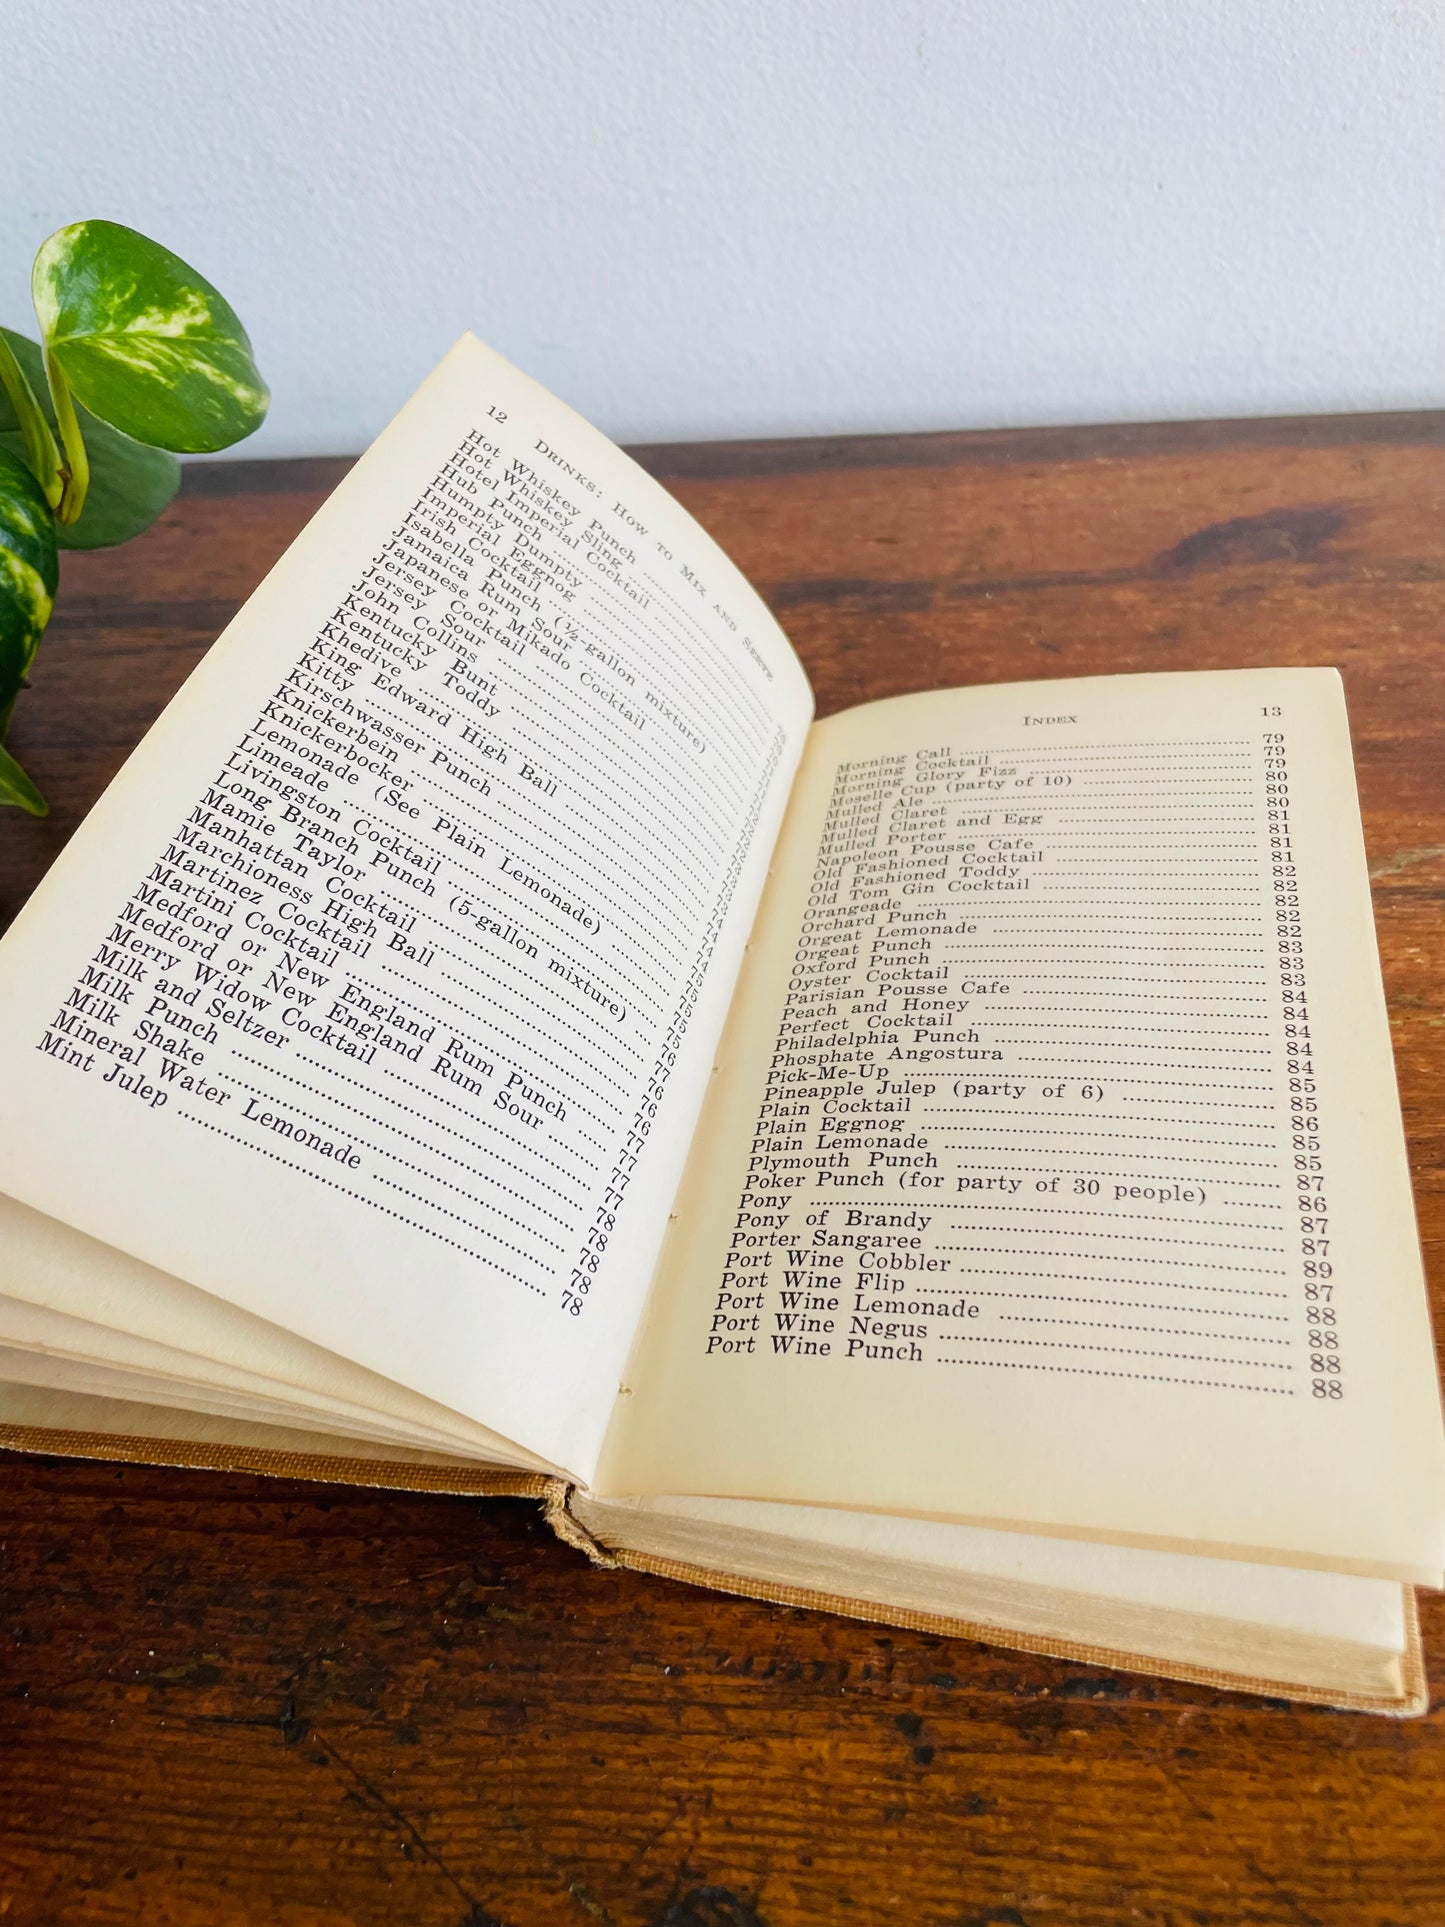 12 DRINKS: HOW TO MIX AND SERVE
Hot Whiskey Punch
Hot Whiskey Sling
Hotel Imperial Cocktail
Hub Punch
Humpty Dumpty
Imperial Eggnog
Irish Cocktail
Isabella Punch (½-gallon mixture)
Jamaica Rum Sour
Japanese or Mikado Cocktail
Jersey Cocktail
Jersey Sour
John Collins
Kentucky Bunt
Kentucky Toddy
Khedive
King Edward High Ball
Kitty
Kirschwasser Punch
Knickerbein
Knickerbocker
Lemonade (See Plain Lemonade)
Limeade
Livingston Cocktail
Long Branch Punch (5-gallon mixture)
Mamie Taylor
Manhattan Cocktail ... 76
Marchioness High Ball ... 76
Martinez Cocktail ... 76
Martini Cocktail ... 77
Medford or New England Rum Punch ... 77
Medford or New England Rum Sour ... 77
Merry Widow Cocktail ... 77
Milk and Seltzer ... 78
Milk Punch ... 78
Milk Shake ... 78
Mineral Water Lemonade ... 78
Mint Julep ... 78
INDEX 13
Morning Call ... 79
Morning Cocktail ... 79
Morning Glory Fizz ... 79
Moselle Cup (party of 10) ... 80
Mulled Ale ... 80
Mulled Claret ... 80
Mulled Claret and Egg ... 81
Mulled Porter ... 81
Napoleon Pousse Cafe ... 81
Old Fashioned Cocktail ... 81
Old Fashioned Toddy ... 82
Old Tom Gin Cocktail ... 82
Orangeade ... 82
Orchard Punch ... 82
Orgeat Lemonade ... 82
Orgeat Punch ... 83
Oxford Punch ... 83
Oyster Cocktail ... 83
Parisian Pousse Cafe ... 84
Peach and Honey ... 84
Perfect Cocktail ... 84
Philadelphia Punch ... 84
Phosphate Angostura ... 84
Pick-Me-Up ... 85
Pineapple Julep (party of 6) ... 85
Plain Cocktail ... 86
Plain Eggnog ... 85
Plain Lemonade ... 85
Plymouth Punch ... 87
Poker Punch (for party of 30 people) ... 86
Pony ... 87
Pony of Brandy ... 87
Porter Sangaree ... 89
Port Wine Cobbler ... 87
Port Wine Flip ... 88
Port Wine Lemonade ... 88
Port Wine Negus ... 88
Port Wine Punch ... 88